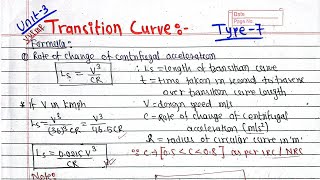 Unit-3
Date
Page No.
Transition Curve:- Type-7
Formula:-
① Rate of change of centrifugal acceleration
Ls = V³/CR
Ls = length of transition curve
t = time taken in second to traverse
over transition curve length
* if V in kmph
V = design speed m/s
Ls = V³/(3.6)³CR = V³/46.5CR
C = Rate of change of centrifugal
acceleration (m/s³)
R = radius of circular curve in 'm'
Ls = 0.0215V³/CR
C → [0.5 < C < 0.8] as per IRC / NRC
Note:-